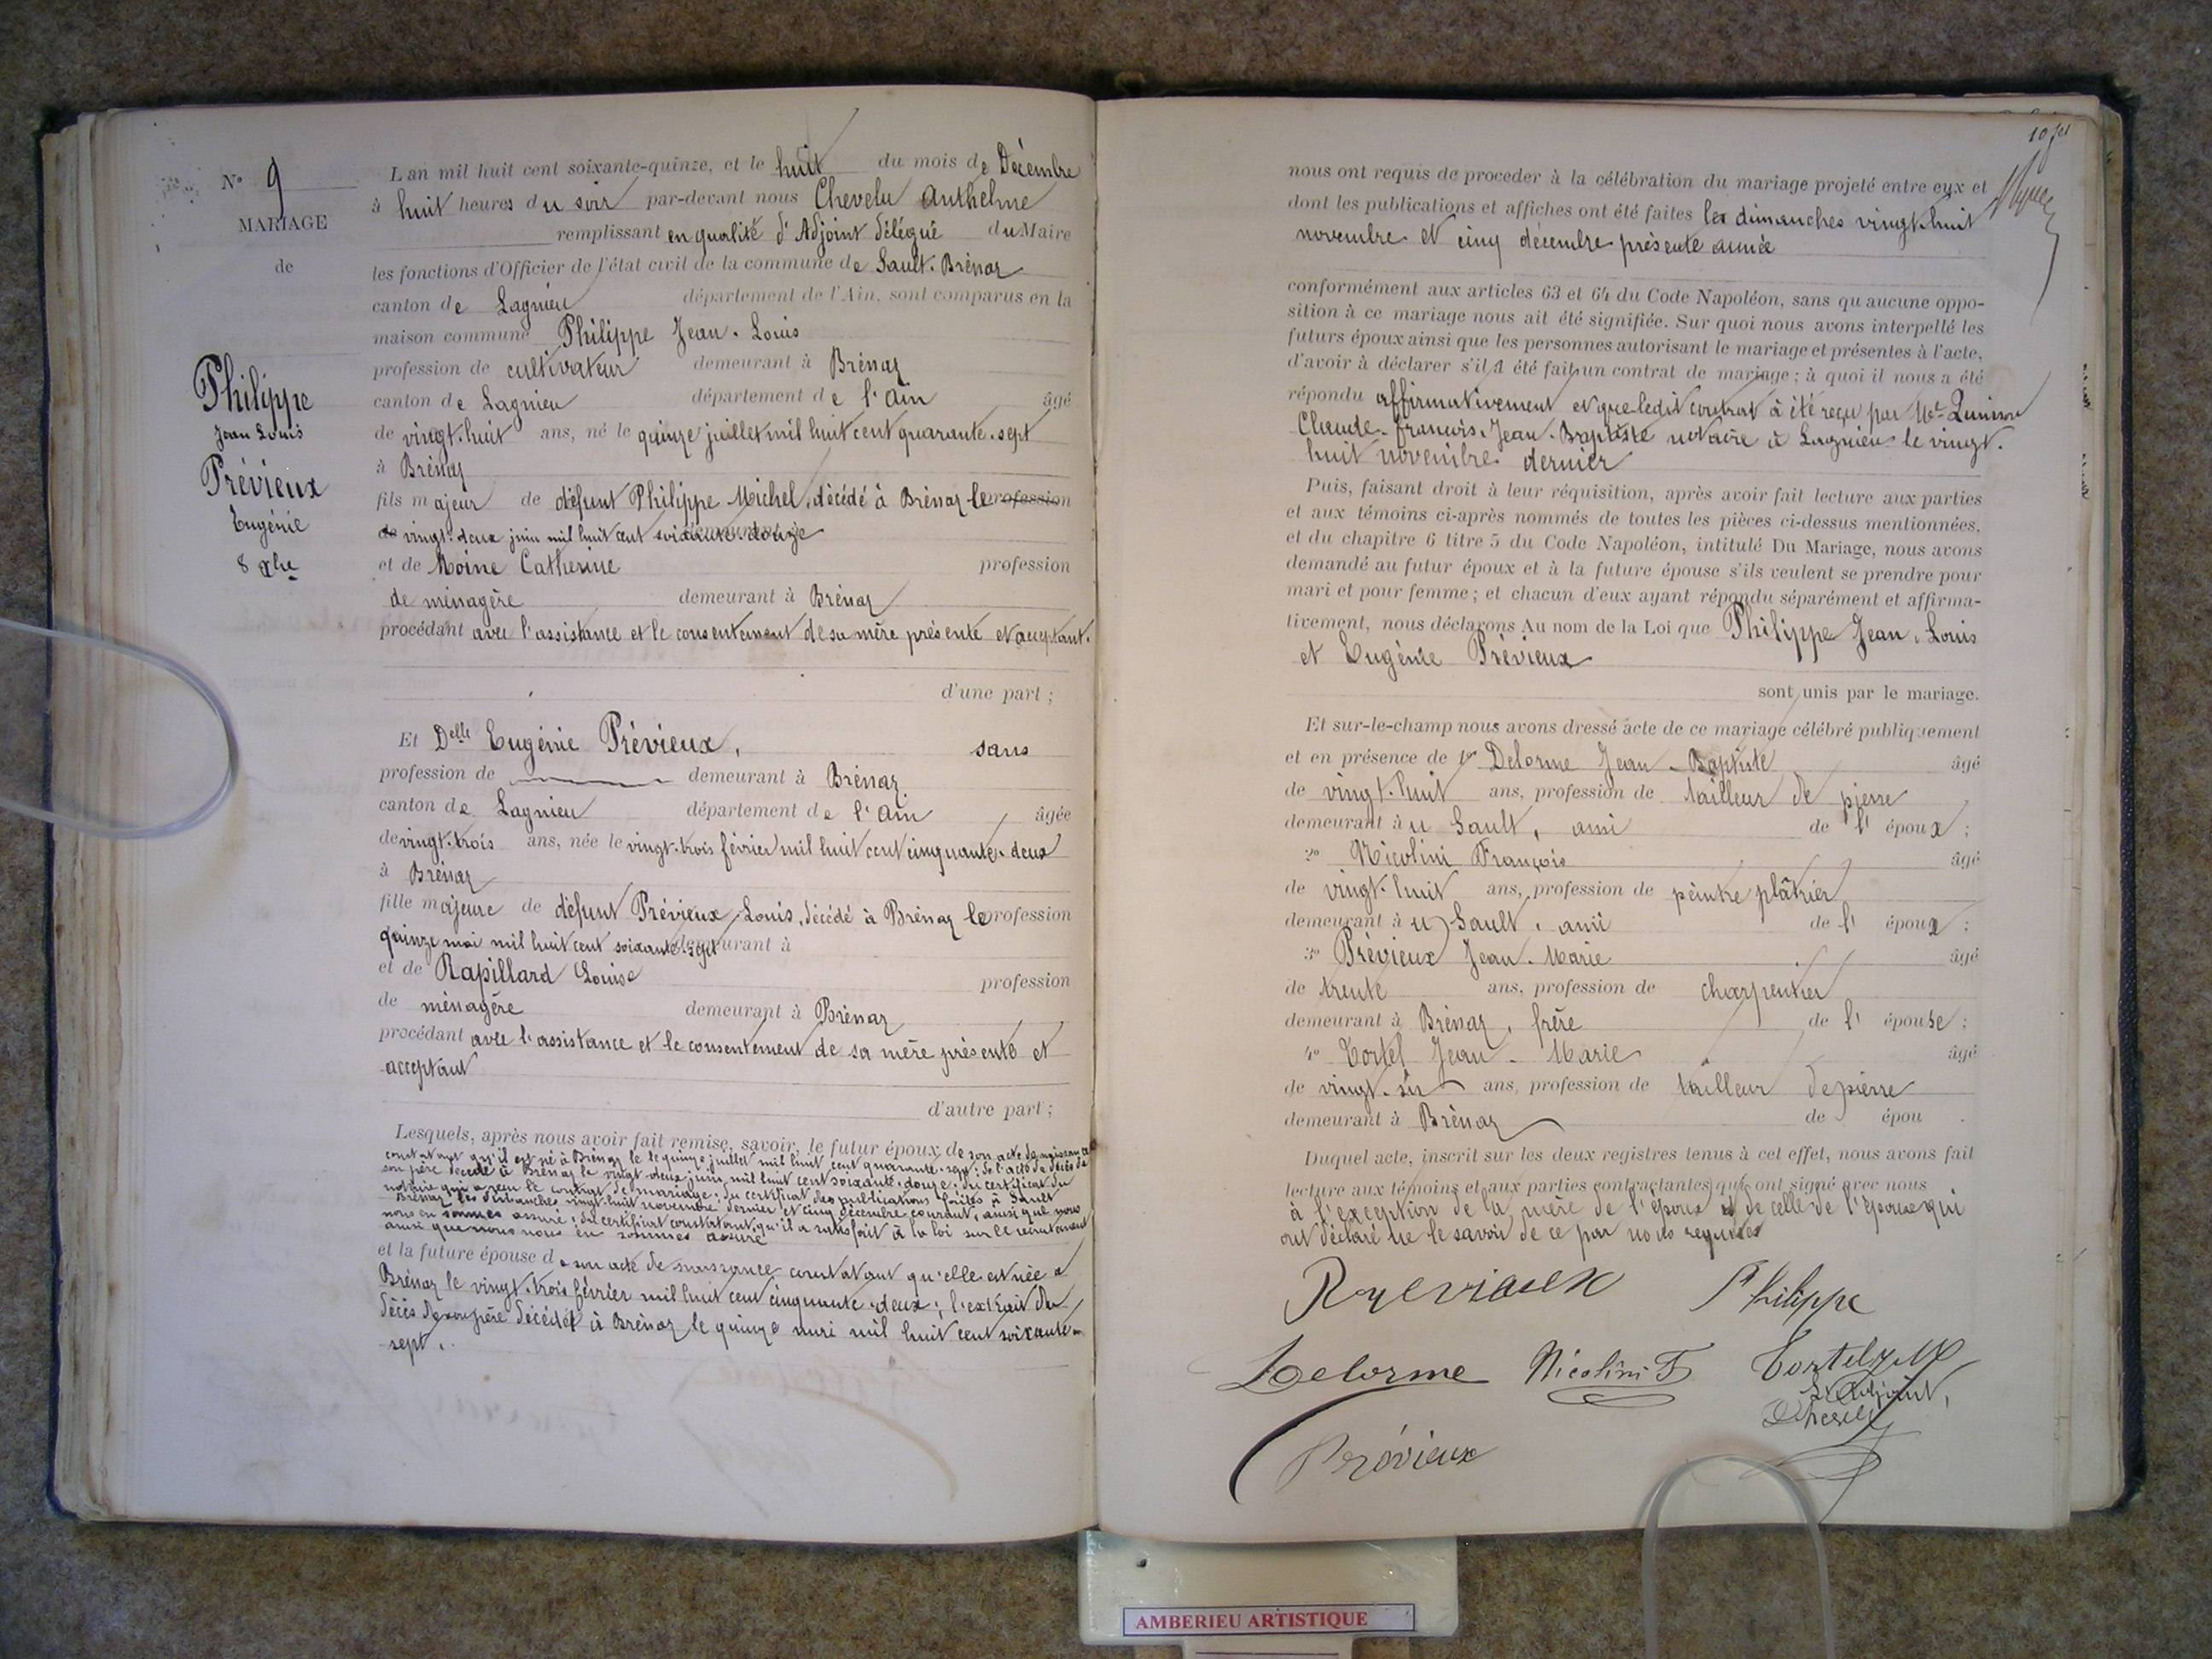 N° 9
MARIAGE
de
Philippe
Jean Louis
Prévieux
Eugénie
8 Xbre
L'an mil huit cent soixante-quinze, et le huit du mois de Décembre
à huit heures du soir par-devant nous Chevelu Anthelme
remplissant en qualité d'Adjoint délégué du Maire
les fonctions d'Officier de l'état civil de la commune de Sault-Brénaz
canton de Lagnieu département de l'Ain, sont comparus en la
maison commune Philippe Jean-Louis
profession de cultivateur demeurant à Brénaz
canton de Lagnieu département de l'Ain âgé
de vingt-huit ans, né le quinze juillet mil huit cent quarante-sept
à Brénaz
fils majeur de défunt Philippe Michel, décédé à Brénaz le profession
de vingt-deux juin mil huit cent soixante-douze demeurant à
et de Moine Catherine profession
de ménagère demeurant à Brénaz
procédant avec l'assistance et le consentement de sa mère présente et acceptant.
d'une part ;
Et Delle Eugénie Prévieux, sans
profession de demeurant à Brénaz
canton de Lagnieu département de l'Ain âgée
de vingt-trois ans, née le vingt-trois février mil huit cent cinquante-deux
à Brénaz
fille majeure de défunt Prévieux Louis, décédé à Brénaz le profession
quinze mai mil huit cent soixante-sept demeurant à
et de Rapillard Louise profession
de ménagère demeurant à Brénaz
procédant avec l'assistance et le consentement de sa mère présente et
acceptant
d'autre part ;
Lesquels, après nous avoir fait remise, savoir, le futur époux de son acte de naissance
constatant qu'il est né à Brénaz le quinze juillet mil huit cent quarante-sept ; de l'acte de décès de
son père décédé à Brénaz le vingt-deux juin mil huit cent soixante-douze ; du certificat du
notaire qui a reçu le contrat de mariage ; du certificat des publications faites à Sault
Brénaz les dimanches vingt-huit novembre dernier et cinq décembre courant, ainsi que nous
nous en sommes assuré ; du certificat constatant qu'il a satisfait à la loi sur le recrutement
ainsi que nous nous en sommes assuré
et la future épouse de son acte de naissance constatant qu'elle est née à
Brénaz le vingt-trois février mil huit cent cinquante-deux ; l'extrait du
décès de son père décédé à Brénaz le quinze mai mil huit cent soixante-
sept.
nous ont requis de procéder à la célébration du mariage projeté entre eux et
dont les publications et affiches ont été faites les dimanches vingt-huit
novembre et cinq décembre présente année
conformément aux articles 63 et 64 du Code Napoléon, sans qu'aucune oppo-
sition à ce mariage nous ait été signifiée. Sur quoi nous avons interpellé les
futurs époux ainsi que les personnes autorisant le mariage et présentes à l'acte,
d'avoir à déclarer s'il a été fait un contrat de mariage ; à quoi il nous a été
répondu affirmativement et que ledit contrat à été reçu par Me Quinson
Claude-François-Jean-Baptiste notaire à Lagnieu le vingt-
huit novembre dernier
Puis, faisant droit à leur réquisition, après avoir fait lecture aux parties
et aux témoins ci-après nommés de toutes les pièces ci-dessus mentionnées,
et du chapitre 6 titre 5 du Code Napoléon, intitulé Du Mariage, nous avons
demandé au futur époux et à la future épouse s'ils veulent se prendre pour
mari et pour femme ; et chacun d'eux ayant répondu séparément et affirma-
tivement, nous déclarons Au nom de la Loi que Philippe Jean-Louis
et Eugénie Prévieux
sont unis par le mariage.
Et sur-le-champ nous avons dressé acte de ce mariage célébré publiquement
et en présence de 1° Delorme Jean-Baptiste âgé
de vingt-huit ans, profession de tailleur de pierre
demeurant à u Sault, ami de l'époux ;
2° Nicolini François âgé
de vingt-huit ans, profession de peintre plâtrier
demeurant à u Sault, ami de l'époux ;
3° Prévieux Jean-Marie âgé
de trente ans, profession de charpentier
demeurant à Brénaz, frère de l'épouse ;
4° Tortel Jean-Marie âgé
de vingt-six ans, profession de tailleur de pierre
demeurant à Brénaz de épou .
Duquel acte, inscrit sur les deux registres tenus à cet effet, nous avons fait
lecture aux témoins et aux parties contractantes qui ont signé avec nous
à l'exception de la mère de l'époux et de celle de l'épouse qui
ont déclaré ne le savoir de ce par nous requises
Philippe
Delorme Nicolini F Tortel J M
L'Adjoint,
Prévieux
AMBERIEU ARTISTIQUE